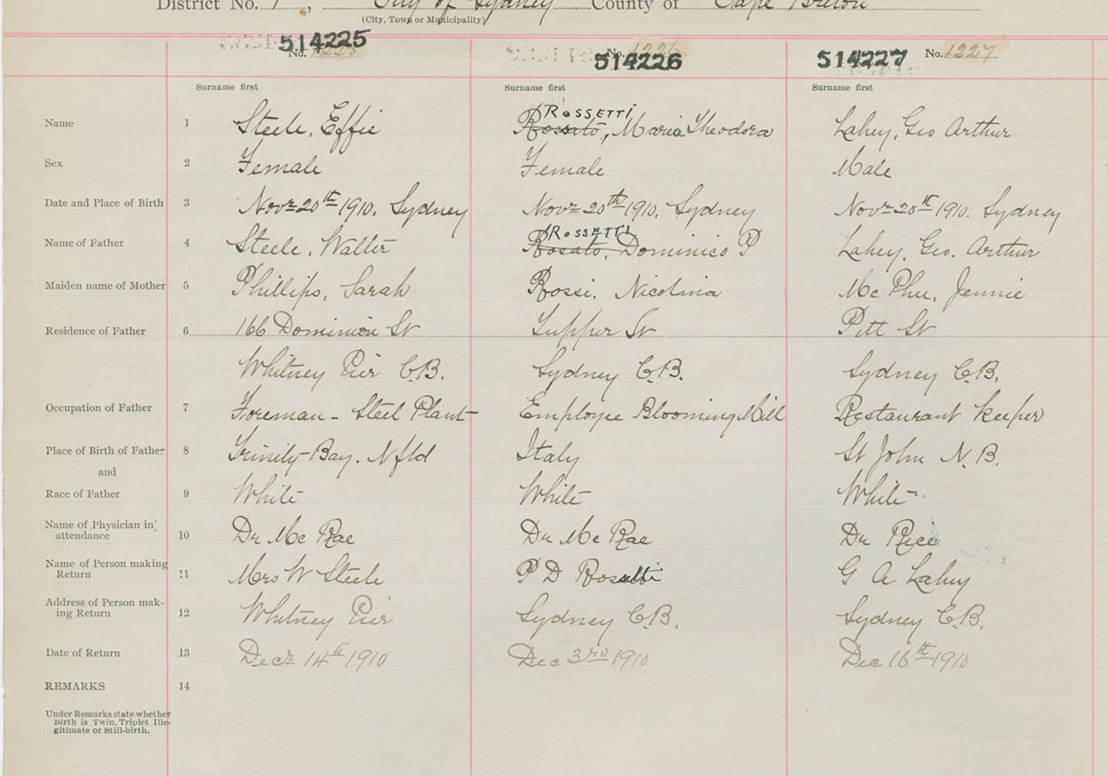 District No. 1, City of Sydney County of Cape Breton
(City, Town or Municipality)
514225 514226 514227
No. 1225 No. 1226 No. 1227
Surname first Surname first Surname first
ROSSETTI
Name 1 Steele, Effie Rosato, Maria Theodora Lahey, Geo Arthur
Sex 2 Female Female Male
Date and Place of Birth 3 Novr 20th 1910. Sydney Novr 20th 1910. Sydney Novr 20th 1910. Sydney
ROSSETTI
Name of Father 4 Steele, Walter Rosato, Dominico P Lahey, Geo. Arthur
Maiden name of Mother 5 Phillips, Sarah Rossi, Nicolina Mc Phee, Jennie
Residence of Father 6 166 Dominion St Tupper St Pitt St
Whitney Pier C.B. Sydney C.B. Sydney C.B.
Occupation of Father 7 Foreman - Steel Plant Employee Blooming Mill Restaurant Keeper
Place of Birth of Father 8 Trinity Bay. Nfld Italy St John N.B.
and
Race of Father 9 White White White
Name of Physician in attendance 10 Dr Mc Rae Dr Mc Rae Dr Rice
Name of Person making Return 11 Mrs W Steele P D Rosetti G A Lahey
Address of Person mak-
ing Return 12 Whitney Pier Sydney C.B. Sydney C.B.
Date of Return 13 Decr 14th 1910 Dec 3rd 1910 Dec 16th 1910
REMARKS 14
Under Remarks state whether
Birth is Twin, Triplet Ille-
gitimate or Still-birth.